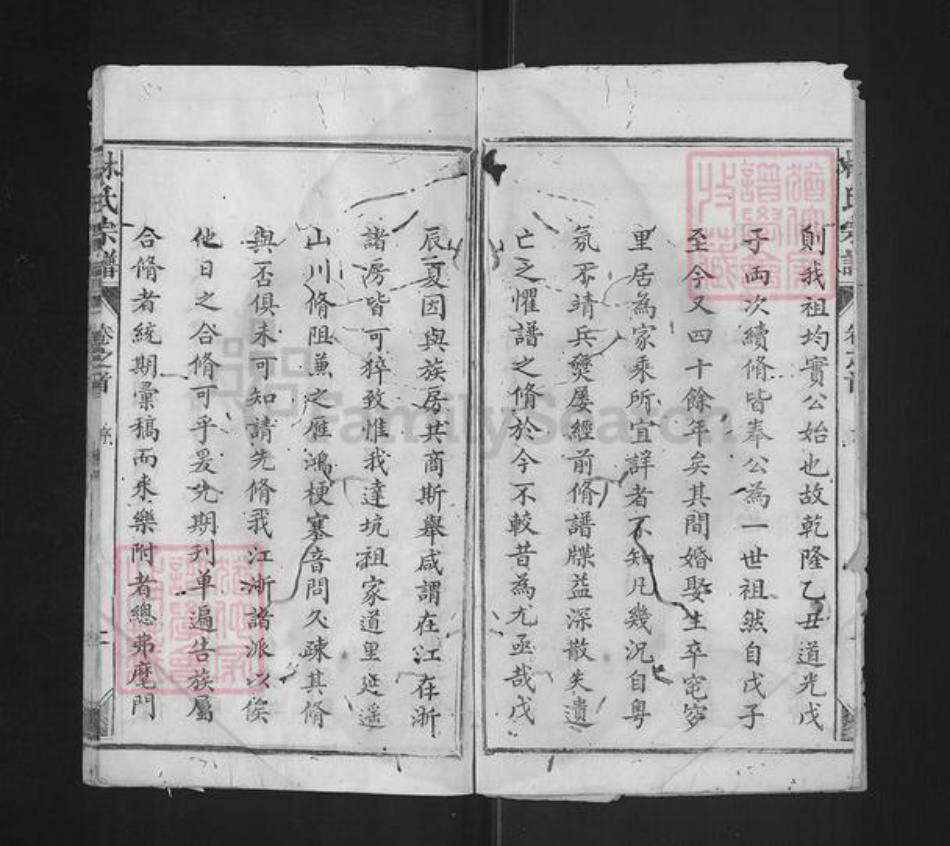 則我祖均實公始也故乾隆乙丑道光戊
子兩次續脩皆奉公為一世祖然自戊子
至今又四十餘年矣其間婚娶生卒窀穸
里居為家乘所宜詳者不知凡幾況自粵
氛不靖兵燹屡經前脩譜牒益深散失遺
亡之懼譜之脩於今不較昔為尤亟哉戊
辰夏因與族房共商斯舉咸謂在江在浙
諸房皆可猝致惟我達坑祖家道里延遥
山川脩阻兼之雁鴻梗塞音問久疎其脩
與否俱未可知請先脩我江浙諸派以俟
他日之合脩可乎爰先期刊单遍告族屬
合脩者統期彙稿而来樂附者總弗麾門
林氏宗譜
卷之首
序
FamilySearch